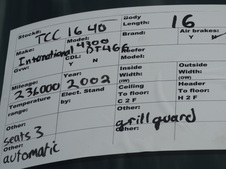 Stock#: TCC 1640 Body Length: 16
Make: International Model: 4300 DT466 Brand: Air brakes: Y N
CDL: Y N Reefer Model:
Mileage: 236000 Year: 2002 Inside Width: (OW) Outside Width (OW)
Temperature range: Elect. Stand by: Ceiling To floor: H 2 F Header To floor: C 2 F
Other: seats 3 Other: grill guard
Other: automatic Other: